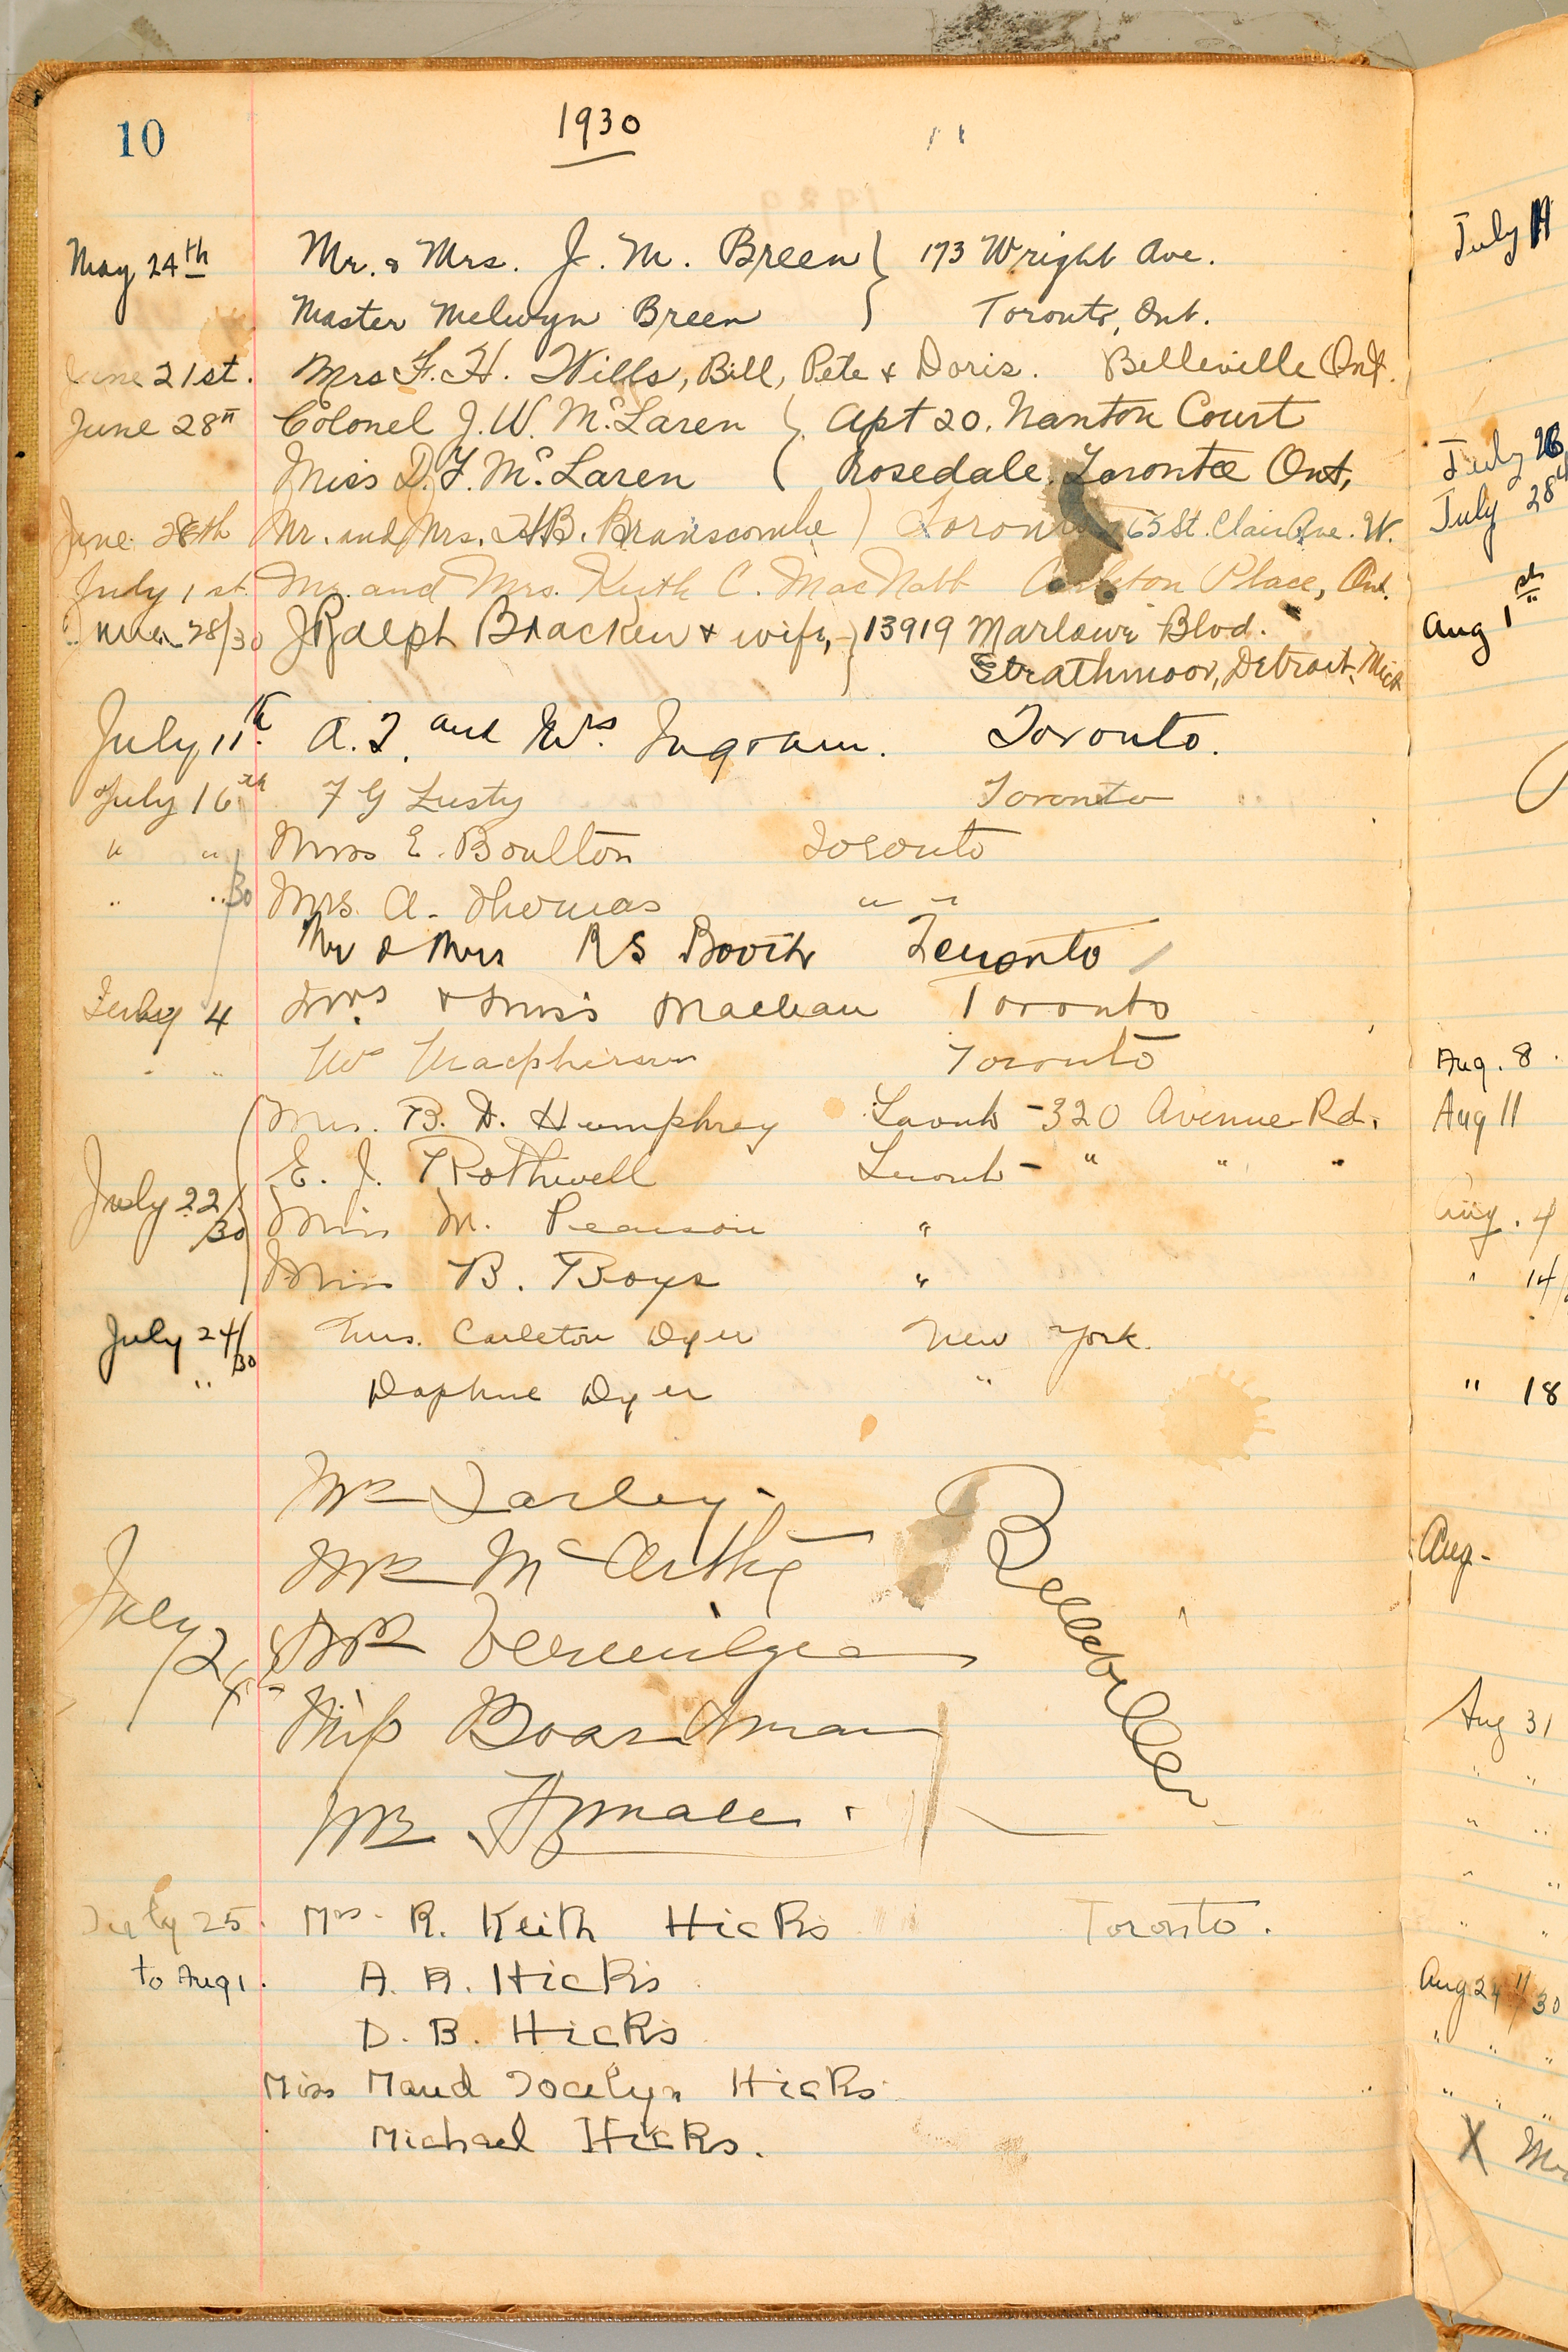 10
1930
May 24th Mr. & Mrs. J. M. Breen } 173 Wright Ave.
Master Melwyn Breen } Toronto, Ont.
June 21st. Mrs F. H. Wills, Bill, Pete & Doris. Belleville Ont.
June 28th Colonel J. W. McLaren } Apt 20. Nanton Court
Miss D. F. McLaren ( Rosedale. Toronto Ont,
June 28th Mr. and Mrs. H.B. Branscombe ) Toronto 65 St. Clair Ave. W.
July 1st. Mr. and Mrs. Keith C. MacNabb Carleton Place, Ont.
June 28/30 J Ralph Bracken & wife, } 13919 Marlowe Blvd.
Strathmoor, Detroit, Mich
July 11th. A. I. and Mrs. Ingram. Toronto.
July 16th F G Lusty Toronto
" " Mrs E. Boulton Toronto
" "/30 Mrs. A. Thomas " "
Mr & Mrs R S Booth Toronto
July 4 Mrs. & Miss Maclean Toronto
" " Macpherson Toronto
Mrs. B. D. Humphrey Toronto - 320 Avenue Rd.
E. J. Rothwell Toronto - " " "
July 22/30 Miss M. Pearson "
Miss B. Boys "
July 24/30 Mrs. Carleton Dyer New York.
" Daphne Dyer "
Farley.
Belleville
July 24
Miss Boardman
July 25. Mrs. R. Keith Hicks Toronto.
to Aug 1. A. R. Hicks
D. B. Hicks
Miss Maud Jocelyn Hicks
Michael Hicks.
July 11
July 26
July 28
Aug 1st
Aug. 8.
Aug 11
Aug. 4
" 14/
" 18
Aug-
Aug 31
" "
" "
" "
" "
Aug 24 /30
" " "
" " "
X